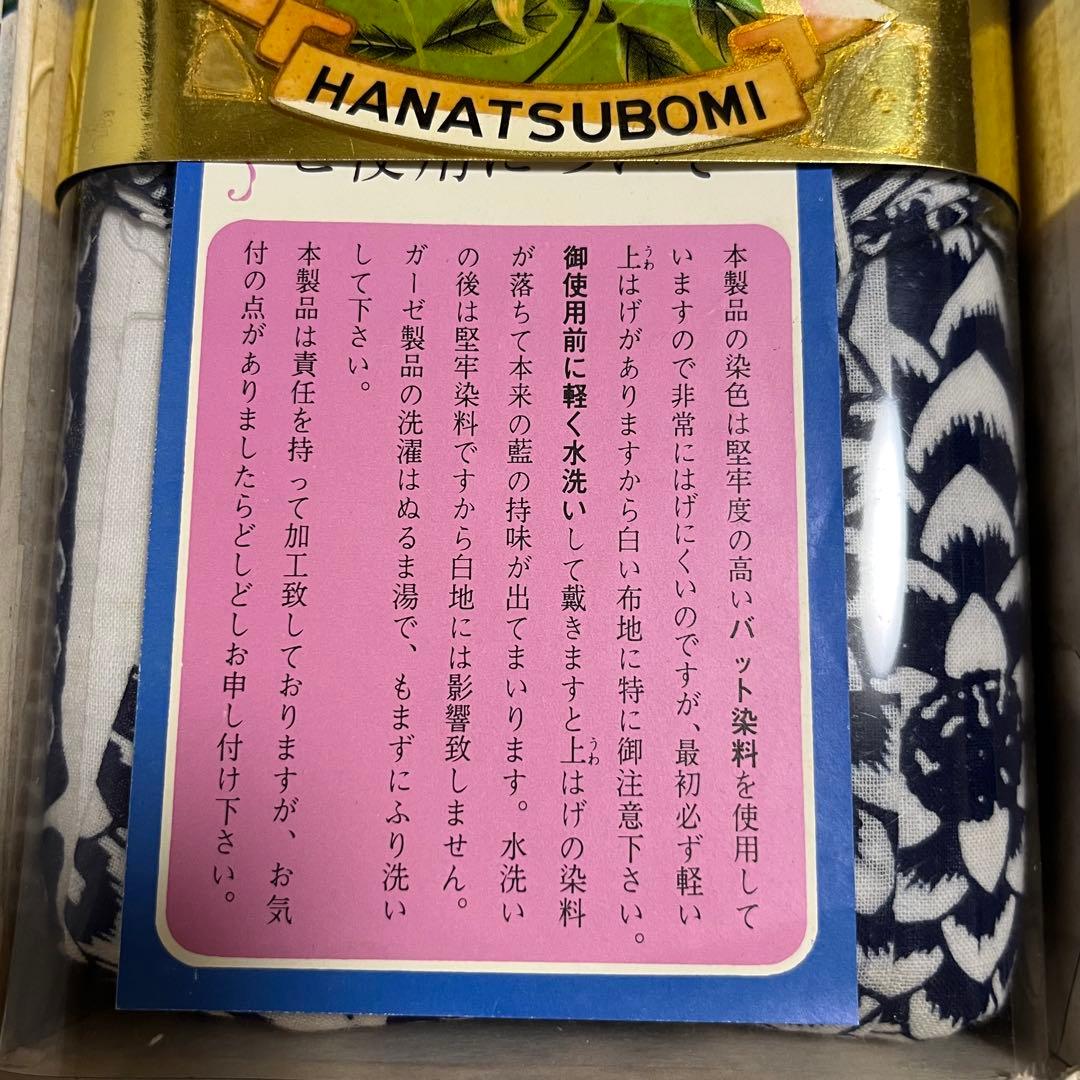 HANATSUBOMI
ご使用について
本製品の染色は堅牢度の高いバット染料を使用して
いますので非常にはげにくいのですが、最初必ず軽い
上はげがありますから白い布地に特に御注意下さい。
うわ
御使用前に軽く水洗いして戴きますと上はげの染料
うわ
が落ちて本来の藍の持味が出てまいります。水洗い
の後は堅牢染料ですから白地には影響致しません。
ガーゼ製品の洗濯はぬるま湯で、もまずにふり洗い
して下さい。
本製品は責任を持って加工致しておりますが、お気
付の点がありましたらどしどしお申し付け下さい。